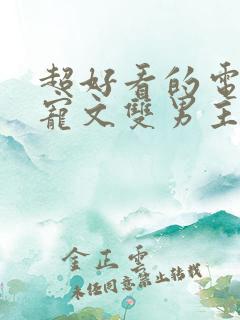 超好看的電
寵文雙男主
金正雲
未经同意禁止转载